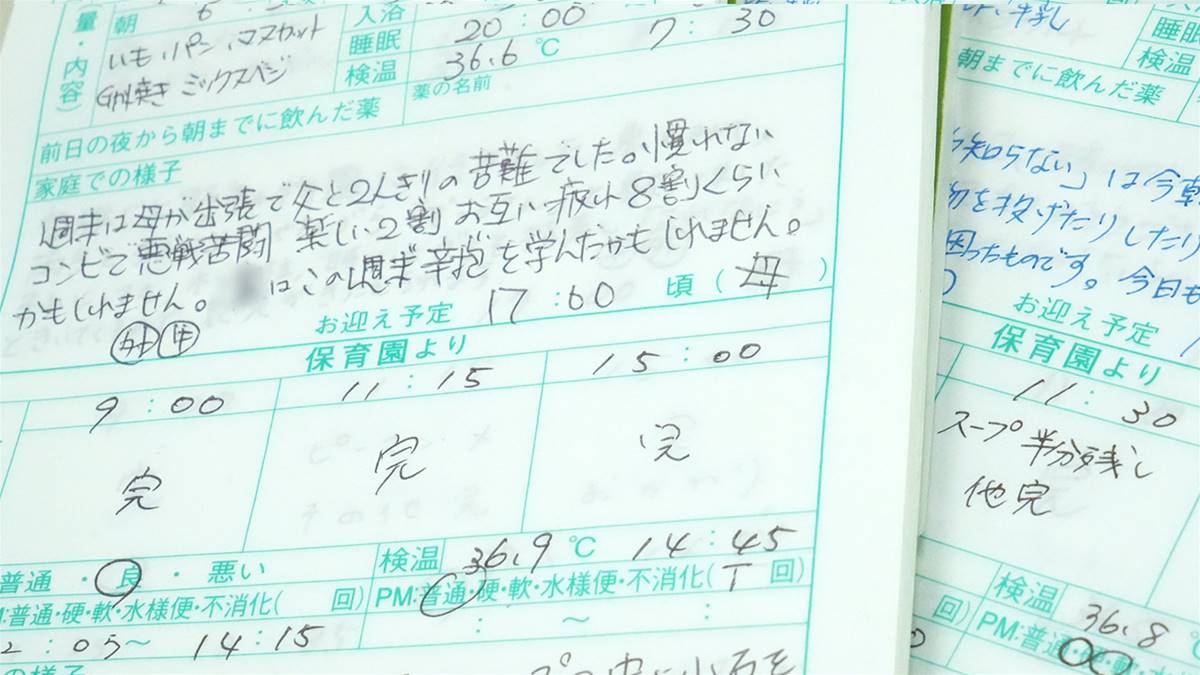 量・内容)
朝
いも パン マスカット
ミックスベジ
入浴
20:00
睡眠
7:30
検温
36.6 ℃
前日の夜から朝までに飲んだ薬
薬の名前
家庭での様子
週末は母が出張で父と2人きりの苦難でした。慣れない
コンビで悪戦苦闘 楽しい2割 お互い疲れ8割くらい
かもしれません。 はこの週末辛抱を学んだかもしれません。
お迎え予定 17:60 頃(母)
保育園より
9:00 11:15 15:00
完 完 完
普通・良・悪い
検温 36.9 ℃ 14:45
普通・硬・軟・水様便・不消化( 回)
PM:普通・硬・軟・水様便・不消化(T 回)
05〜 14:15 : 〜 :
の様子
牛乳
睡眠
検温
朝までに飲んだ薬
知らない」は今朝
を投げたりしたり
困ったものです。今日も
お迎え予定
保育園より
11:30
スープ半分残し
他完
検温 36.8
回) PM:普通・硬・軟・水